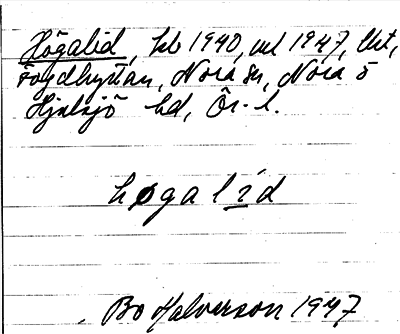 Högalid, hb 1940, ml 1947, lht,
Nora sn, Nora o
Hjulsjö hd, Ör. l.
høgalid
Bo Halvorson 1947